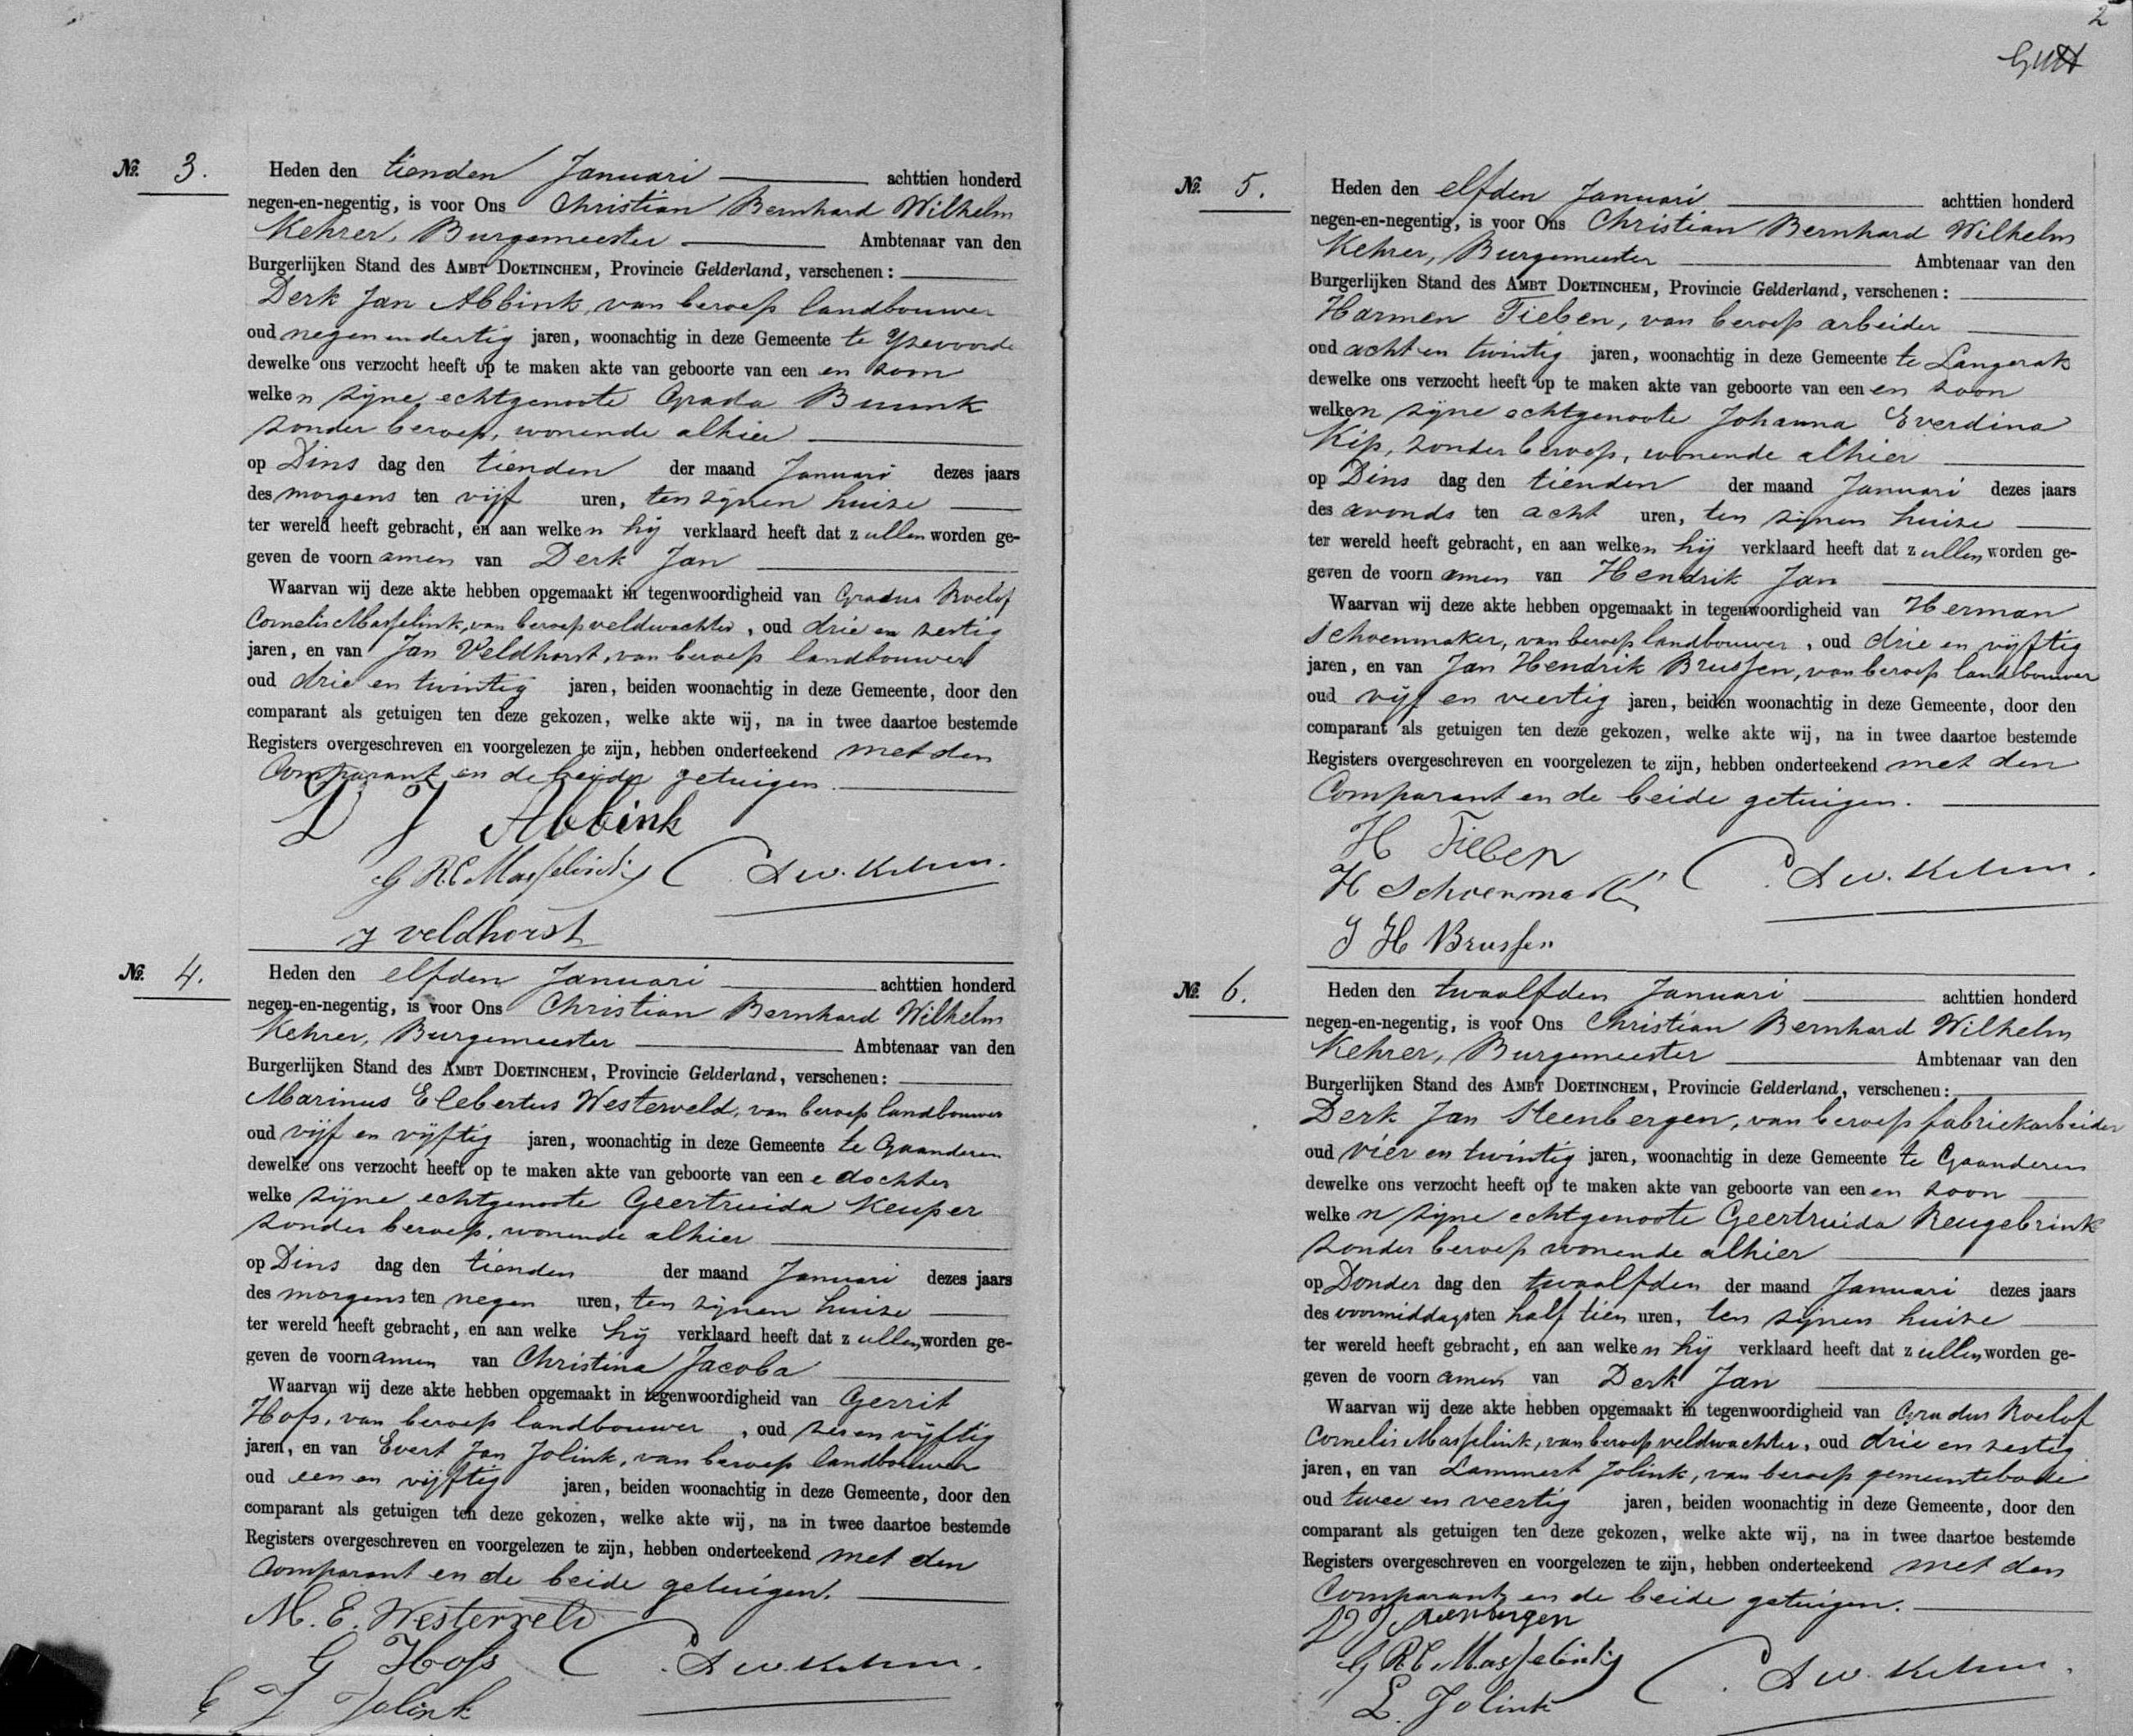 No. 3. Heden den tienden Januari achttien honderd
negen-en-negentig, is voor Ons Christian Bernhard Wilhelm
Kehrer, Burgemeester Ambtenaar van den
Burgerlijken Stand des AMBT DOETINCHEM, Provincie Gelderland, verschenen:
Derk Jan Abbink, van beroep landbouwer
oud negen en dertig jaren, woonachtig in deze Gemeente te IJzevoorde
dewelke ons verzocht heeft op te maken akte van geboorte van een en zoon
welken zijne echtgenoote Grada Buunk
zonder beroep, wonende alhier
op Dins dag den tienden der maand Januari dezes jaars
des morgens ten vijf uren, ten zijnen huize
ter wereld heeft gebracht, en aan welken hij verklaard heeft dat zullen worden ge-
geven de voornamen van Derk Jan
Waarvan wij deze akte hebben opgemaakt in tegenwoordigheid van Gradus Roelof
Cornelis Masselink, van beroep veldwachter, oud drie en zestig
jaren, en van Jan Veldhorst, van beroep landbouwer
oud drie en twintig jaren, beiden woonachtig in deze Gemeente, door den
comparant als getuigen ten deze gekozen, welke akte wij, na in twee daartoe bestemde
Registers overgeschreven en voorgelezen te zijn, hebben onderteekend met den
Comparant en de beide getuigen.
D J Abbink
G R C Masselink
J veldhorst
No. 4. Heden den elfden Januari achttien honderd
negen-en-negentig, is voor Ons Christian Bernhard Wilhelm
Kehrer, Burgemeester Ambtenaar van den
Burgerlijken Stand des AMBT DOETINCHEM, Provincie Gelderland, verschenen:
Marinus Elebertus Westerveld, van beroep landbouwer
oud vijf en vijftig jaren, woonachtig in deze Gemeente te Gaanderen
dewelke ons verzocht heeft op te maken akte van geboorte van een e dochter
welke zijne echtgenoote Geertruida Keuper
zonder beroep, wonende alhier
op Dins dag den tienden der maand Januari dezes jaars
des morgens ten negen uren, ten zijnen huize
ter wereld heeft gebracht, en aan welke hij verklaard heeft dat zullen worden ge-
geven de voornamen van Christina Jacoba
Waarvan wij deze akte hebben opgemaakt in tegenwoordigheid van Gerrit
Hofs, van beroep landbouwer, oud zes en vijftig
jaren, en van Evert Jan Jolink, van beroep landbouwer
oud een en vijftig jaren, beiden woonachtig in deze Gemeente, door den
comparant als getuigen ten deze gekozen, welke akte wij, na in twee daartoe bestemde
Registers overgeschreven en voorgelezen te zijn, hebben onderteekend met den
Comparant en de beide getuigen.
M. E. Westerveld
G Hofs
E J Jolink
2
No. 5. Heden den elfden Januari achttien honderd
negen-en-negentig, is voor Ons Christian Bernhard Wilhelm
Kehrer, Burgemeester Ambtenaar van den
Burgerlijken Stand des AMBT DOETINCHEM, Provincie Gelderland, verschenen:
Harmen Tieben, van beroep arbeider
oud acht en twintig jaren, woonachtig in deze Gemeente te Langerak
dewelke ons verzocht heeft op te maken akte van geboorte van een en zoon
welken zijne echtgenoote Johanna Everdina
Kip, zonder beroep, wonende alhier
op Dins dag den tienden der maand Januari dezes jaars
des avonds ten acht uren, ten zijnen huize
ter wereld heeft gebracht, en aan welken hij verklaard heeft dat zullen worden ge-
geven de voornamen van Hendrik Jan
Waarvan wij deze akte hebben opgemaakt in tegenwoordigheid van Herman
Schoenmaker, van beroep landbouwer, oud drie en vijftig
jaren, en van Jan Hendrik Brussen, van beroep landbouwer
oud vijf en veertig jaren, beiden woonachtig in deze Gemeente, door den
comparant als getuigen ten deze gekozen, welke akte wij, na in twee daartoe bestemde
Registers overgeschreven en voorgelezen te zijn, hebben onderteekend met den
Comparant en de beide getuigen.
H Tieben
H Schoenmaker
J H Brussen
No. 6. Heden den twaalfden Januari achttien honderd
negen-en-negentig, is voor Ons Christian Bernhard Wilhelm
Kehrer, Burgemeester Ambtenaar van den
Burgerlijken Stand des AMBT DOETINCHEM, Provincie Gelderland, verschenen:
Derk Jan Steenbergen, van beroep fabriekarbeider
oud vier en twintig jaren, woonachtig in deze Gemeente te Gaanderen
dewelke ons verzocht heeft op te maken akte van geboorte van een en zoon
welken zijne echtgenoote Geertruida Reugebrink
zonder beroep wonende alhier
op Donder dag den twaalfden der maand Januari dezes jaars
des voormiddags ten half tien uren, ten zijnen huize
ter wereld heeft gebracht, en aan welken hij verklaard heeft dat zullen worden ge-
geven de voornamen van Derk Jan
Waarvan wij deze akte hebben opgemaakt in tegenwoordigheid van Gradus Roelof
Cornelis Masselink, van beroep veldwachter, oud drie en zestig
jaren, en van Lammert Jolink, van beroep gemeentebode
oud twee en veertig jaren, beiden woonachtig in deze Gemeente, door den
comparant als getuigen ten deze gekozen, welke akte wij, na in twee daartoe bestemde
Registers overgeschreven en voorgelezen te zijn, hebben onderteekend met den
Comparant en de beide getuigen.
D J Steenbergen
G R C Masselink
L. Jolink